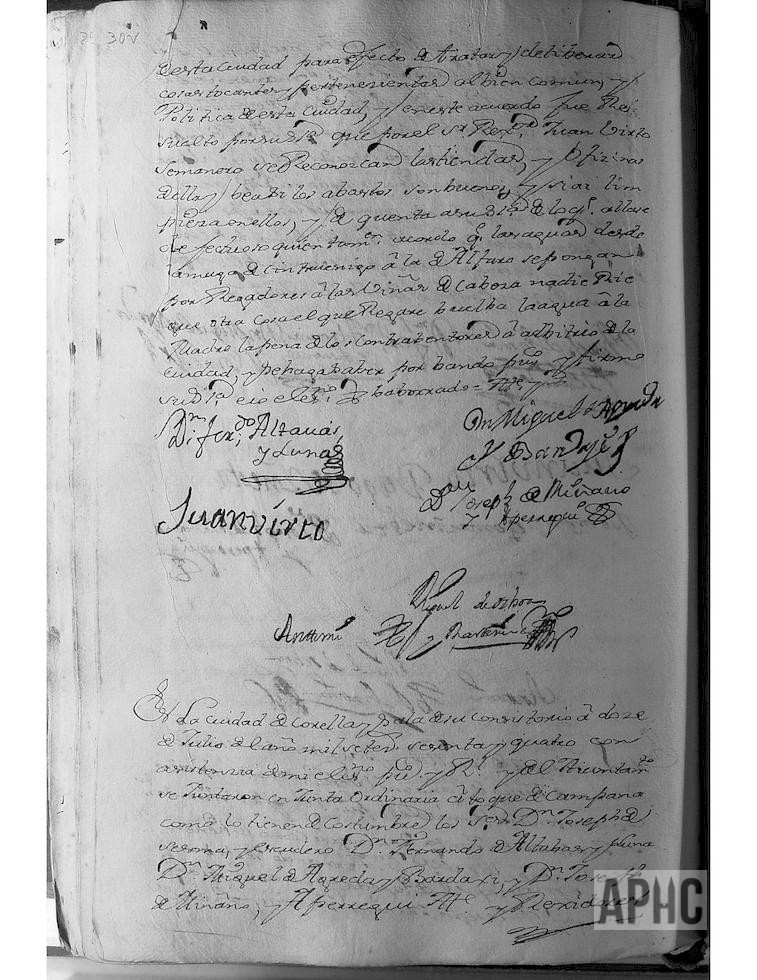 30V
desta ciudad para efecto de tratar y deliberar
cosas tocantes y pertenezientes al bien comun, y
Politica desta ciudad, y en este acuerdo fue Re-
suelto por su Sria que por el Sr Rexor Juan Virto
Semanero se Reconozcan las tiendas, y ofizinas
dellas, los abastos son buenos, y si ai lim
pieza en ellos, y de quenta a su Sria de lo qe allare
defectuoso quien tamn acordo qe las aguas desde
la muga de Cintruenigo à la de Alfaro se pongan
por Regadores à las Viñas de cabera nadie Rie
gue otra cosa el que Regare buelba la agua à la
Madre la pena de los contrabentores à adbitrio de la
ciudad, y se haga saber por bando puco y firmo
su Sria e io el esno
Dn Ferdo Altauas
y Luna
Dn Miguel de Agreda
y Bardaji
Dn Joseph de Miñano
y Aperregui
Juan virto
Miguel
Antemi
En La ciudad de Corella y sala de su consistorio à doze
de Julio del año mil setezs sesenta y quatro con
asistenzia de mi el esno puco y Rl y del Aiuntamto
se Juntaron en Junta Ordinaria à toque de Campana
como lo tienen de Costumbre los Sers Dn Joseph de
Sesma, y escudero Dn Fernando de Altabas y Luna
Dn Miguel de Agreda y Bardaxi, y Dn Joseph
de Miñano, y Aperregui Ale y Rexidores
APHC